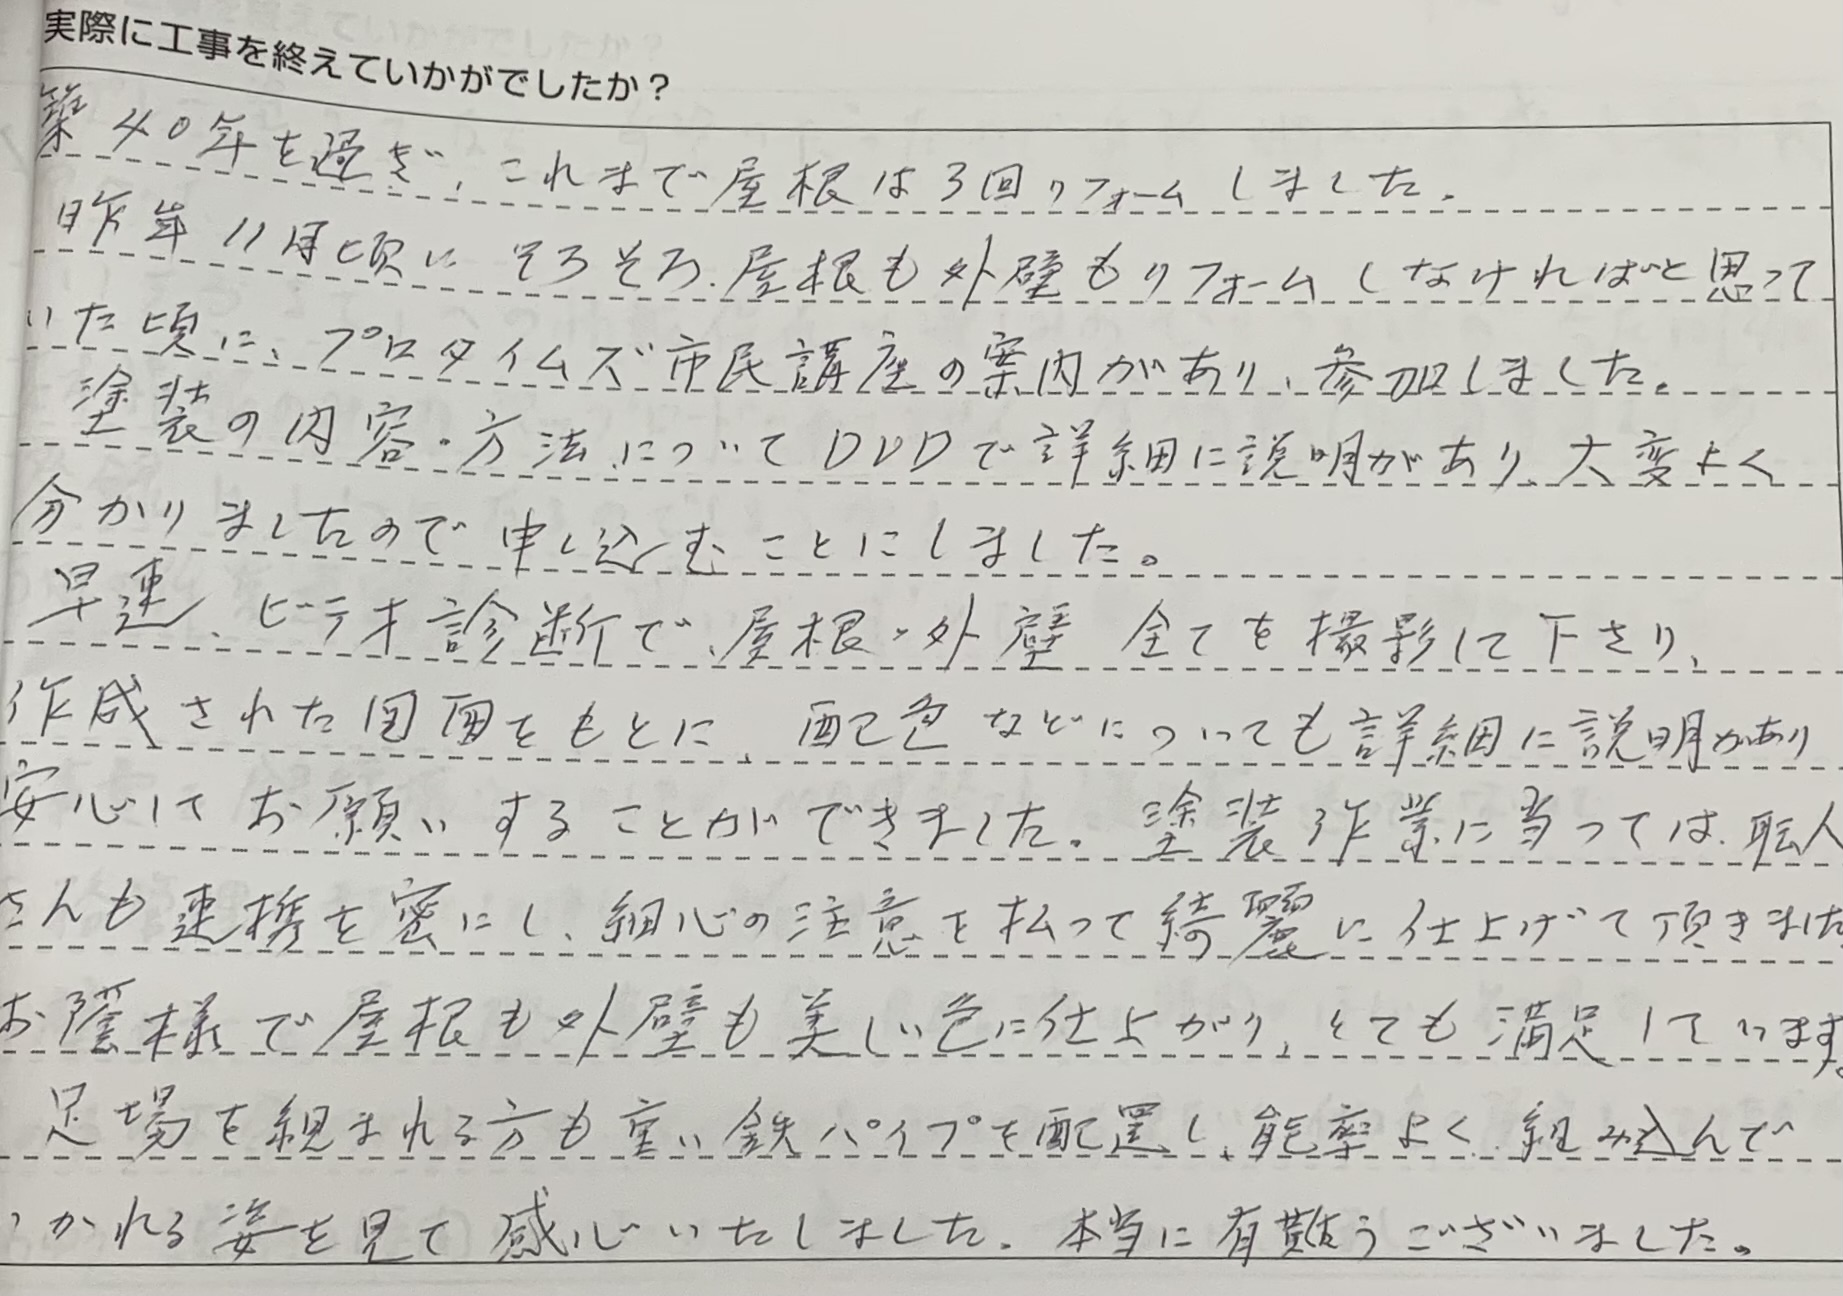 実際に工事を終えていかがでしたか？
築40年を過ぎ、これまで屋根は3回リフォームしました。
昨年11月頃にそろそろ、屋根も外壁もリフォームしなければと思って
いた頃に、プロタイムズ市民講座の案内があり、参加しました。
塗装の内容・方法についてDVDで詳細に説明があり、大変よく
分かりましたので申し込むことにしました。
早速、ビデオ診断で、屋根・外壁 全てを撮影して下さり、
作成された図面をもとに、配色などについても詳細に説明があり
安心してお願いすることができました。塗装作業に当っては、職人
さんも連携を密にし、細心の注意を払って綺麗に仕上げて頂きました
お陰様で屋根も外壁も美しい色に仕上がり、とても満足しています。
足場を組まれる方も重い鉄パイプを配置し、能率よく組み込んで
いかれる姿を見て感心いたしました。本当に有難うございました。